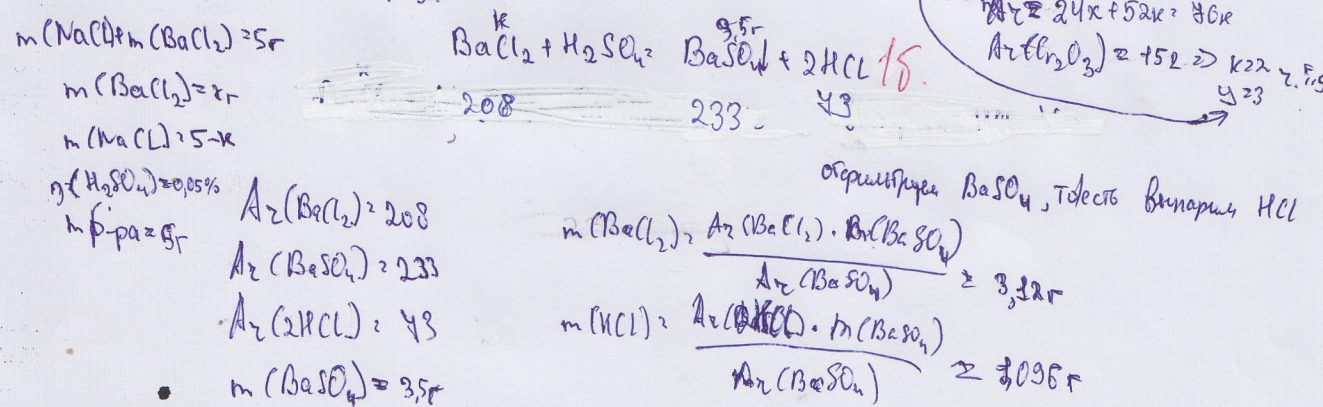 m(NaCl)+m(BaCl₂)=5г
m(BaCl₂)=xг
m(NaCl)=5-x
(H₂SO₄)=0,05%
m р-ра=5г
x 3,5г
BaCl₂+H₂SO₄= BaSO₄↓+2HCl 1б.
208 233 73
Ar=24x+52x=76x
Ar(Cr₂O₃)=152=> x=2
y=3
Ar(BaCl₂)=208
Ar(BaSO₄)=233
Ar(2HCl)=73
m(BaSO₄)=3,5г
отфильтруем BaSO₄, тоесть выпарим HCl
m(BaCl₂)= Ar(BaCl₂)·Br(BaSO₄)
Ar(BaSO₄) = 3,12г
m(HCl)= Ar(HCl)·m(BaSO₄)
Ar(BaSO₄) = 1,096г